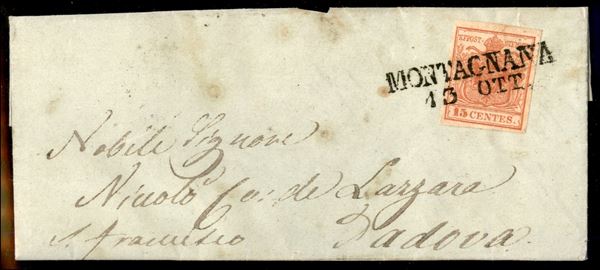 KKPOST-STEMPEL
15 CENTES.
MONTAGNANA
13 OTT.
Nobile Signore
Nicolo Co: de Lazzara
S. Francesco Padova